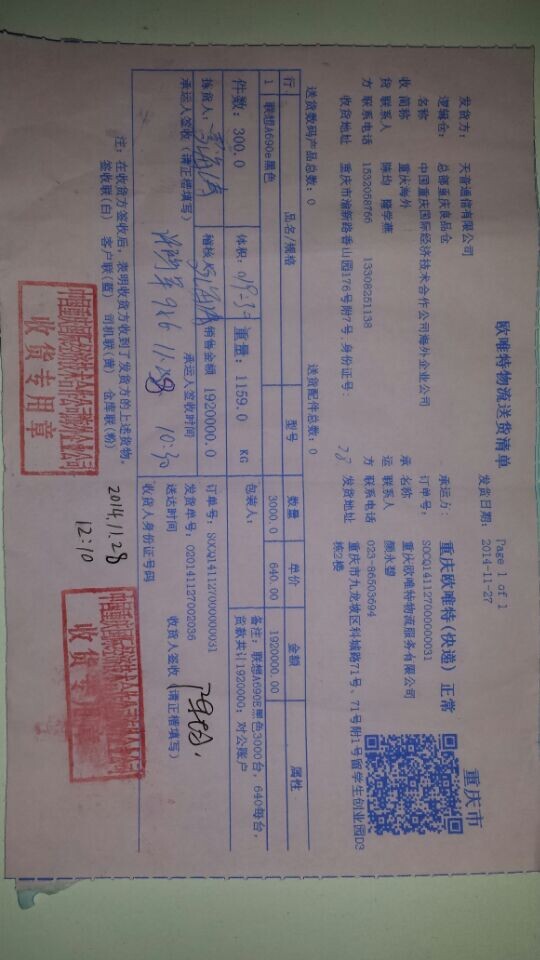 欧唯特物流送货清单
重庆市
Page 1 of 1
发货日期: 2014-11-27
发货方: 天音通信有限公司
逻辑仓: 总部重庆良品仓
承运方: 重庆欧唯特(快递) 正常
名称 中国重庆国际经济技术合作公司海外企业公司
订单号: SOCQ141127000000031
收 简称 重庆海外
承 名称 重庆欧唯特物流服务有限公司
货 联系人 陈均 隆学燕
运 联系人 颜永碧
方 联系电话 1532038766 13308251138
方 联系电话 023-86503694
收货地址 重庆市渝新路香山园176号附7号,身份证号:
发货地址 重庆市九龙坡区科城路71号、71号附1号留学生创业园D3栋2楼
送货数码产品总数: 0
送货配件总数: 0
行 品名/规格 型号 数量 单价 金额 属性
1 联想A690e黑色 3000.0 640.00 1920000.00
件数: 300.0 体积: 重量: 1159.0 KG
包装人:
备注: 联想A690E黑色3000台, 640每台,
货款共计1920000; 对公账户
拣货人: 稽核 销售金额 1920000.0
订单号: SOCQ141127000000031
发货单号: 020141127002036
承运人签收(请正楷填写) 承运人签收时间
送达时间 收货人签收(请正楷填写)
11.28 10:30
收货人身份证号码
注: 在收货方签收后, 表明收货方收到了发货方的上述货物。
签收联(白) 客户联(蓝) 司机联(黄) 仓库联(粉)
2014.11.28
12:10
收货专用章
收货专用章